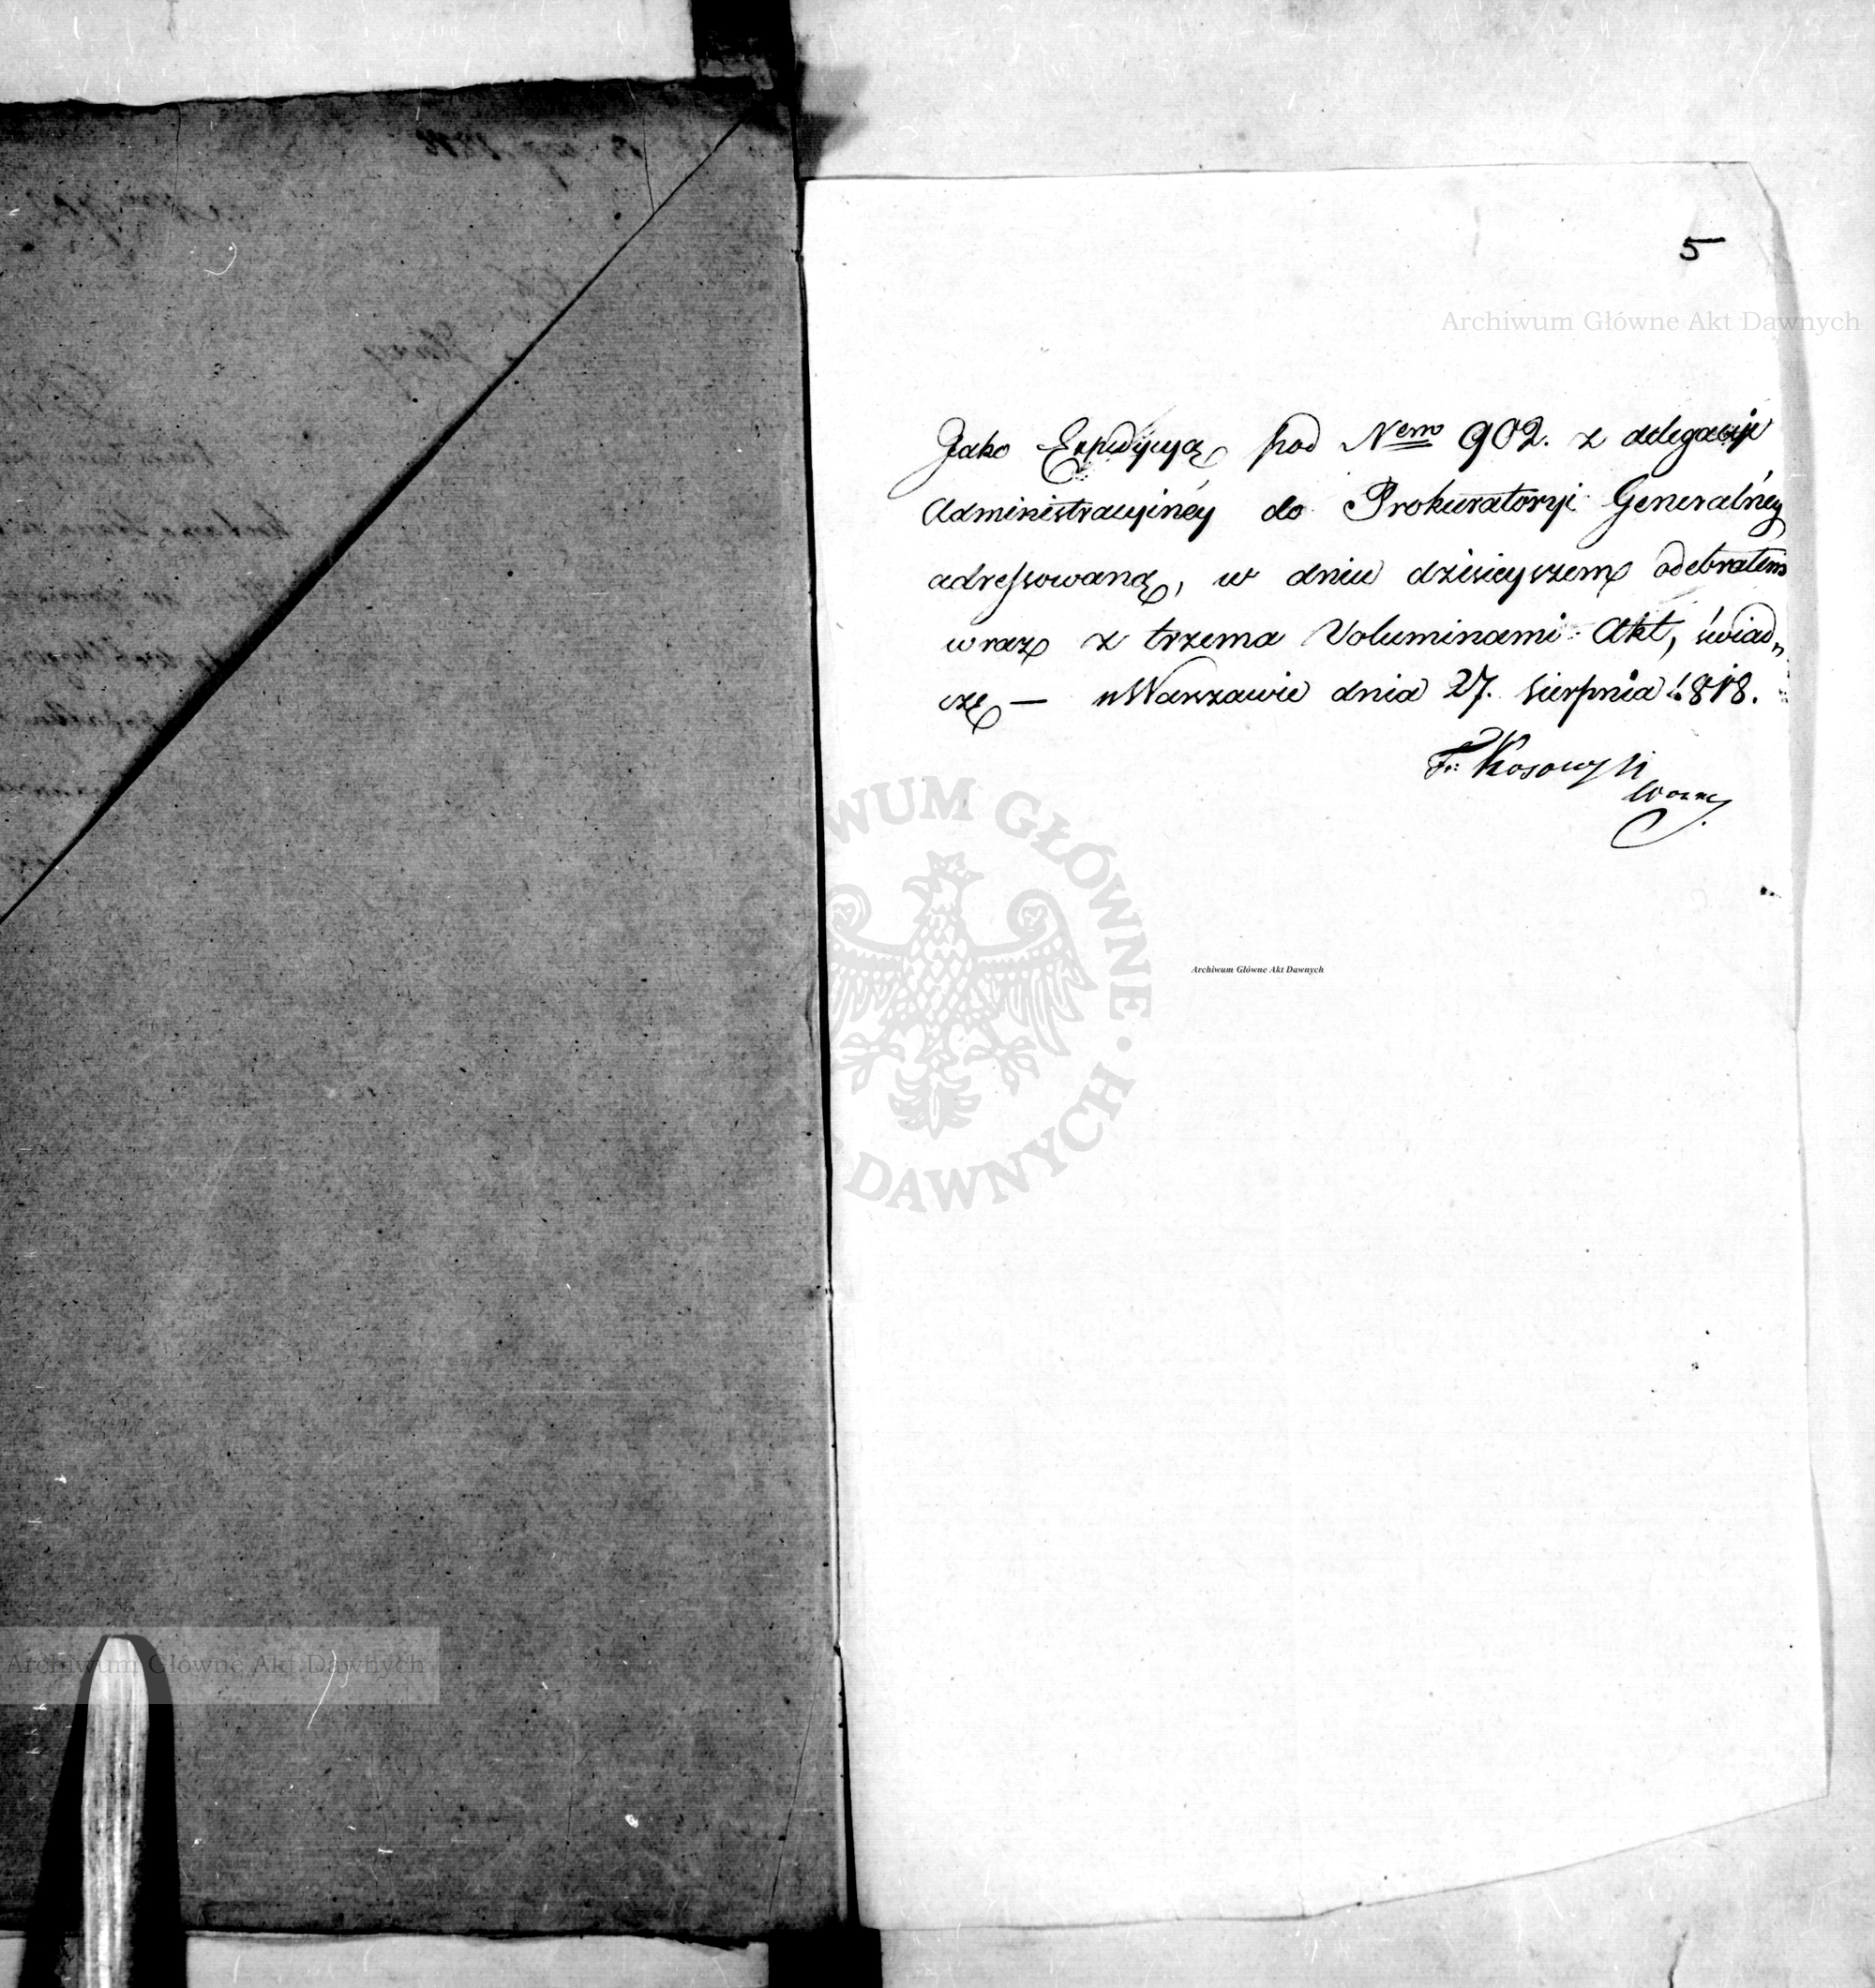 5
Archiwum Główne Akt Dawnych
Jako Expedycyą pod Nem̲o̲ 902. z delegacyi
Administracyinéy do Prokuratoryi Generalnéy
adressowaną, w dniu dzisieyszem odebrałem
wraz z trzema Voluminami Akt, świad„
czę — w Warszawie dnia 27. Sierpnia 1818.
Fr: Kosowski
Woźny
ARCHIWUM GŁÓWNE · DAWNYCH
Archiwum Główne Akt Dawnych
Archiwum Główne Akt Dawnych